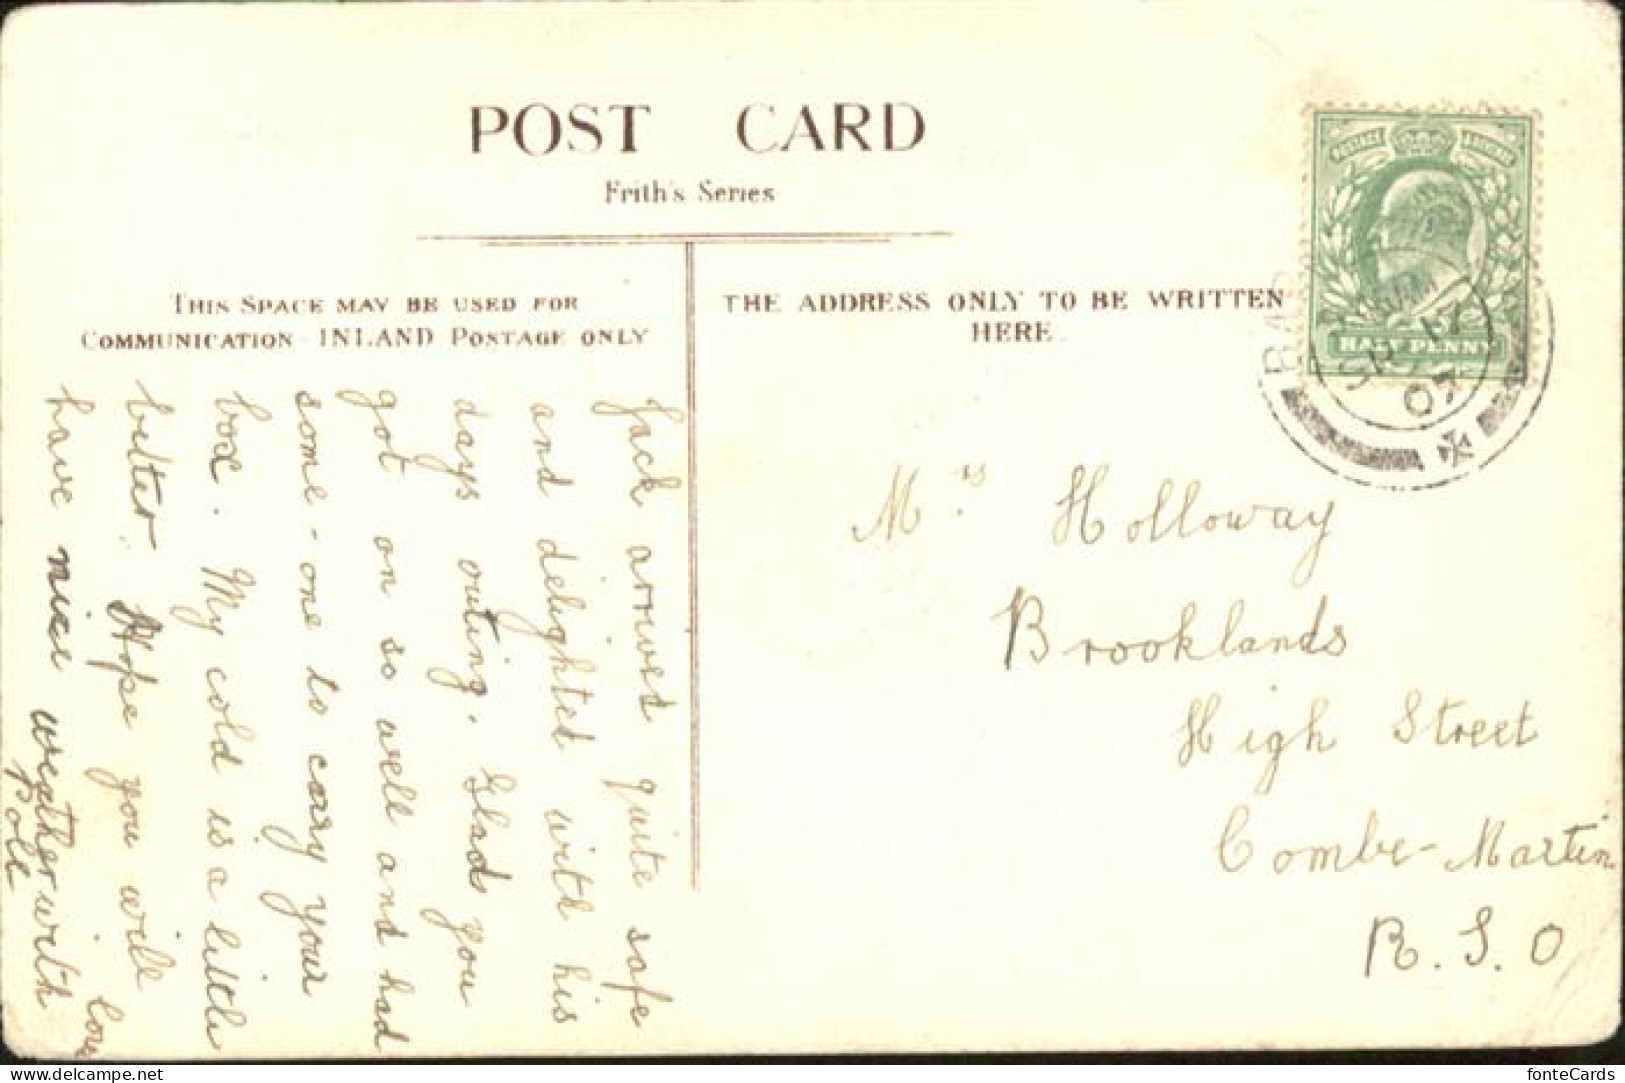 POST CARD
Frith's Series
THIS SPACE MAY BE USED FOR
COMMUNICATION INLAND POSTAGE ONLY
THE ADDRESS ONLY TO BE WRITTEN
HERE.
HALF PENNY
SP 17
07
Jack arrived quite safe
and delighted with his
days outing. Glad you
got on so well and had
some-one to carry your
box. My cold is a little
better. Hope you will
have nice weather with
love
Pole
Mrs Holloway
Brooklands
High Street
Combe-Martin
R.S.O
fonteCards
www.delcampe.net